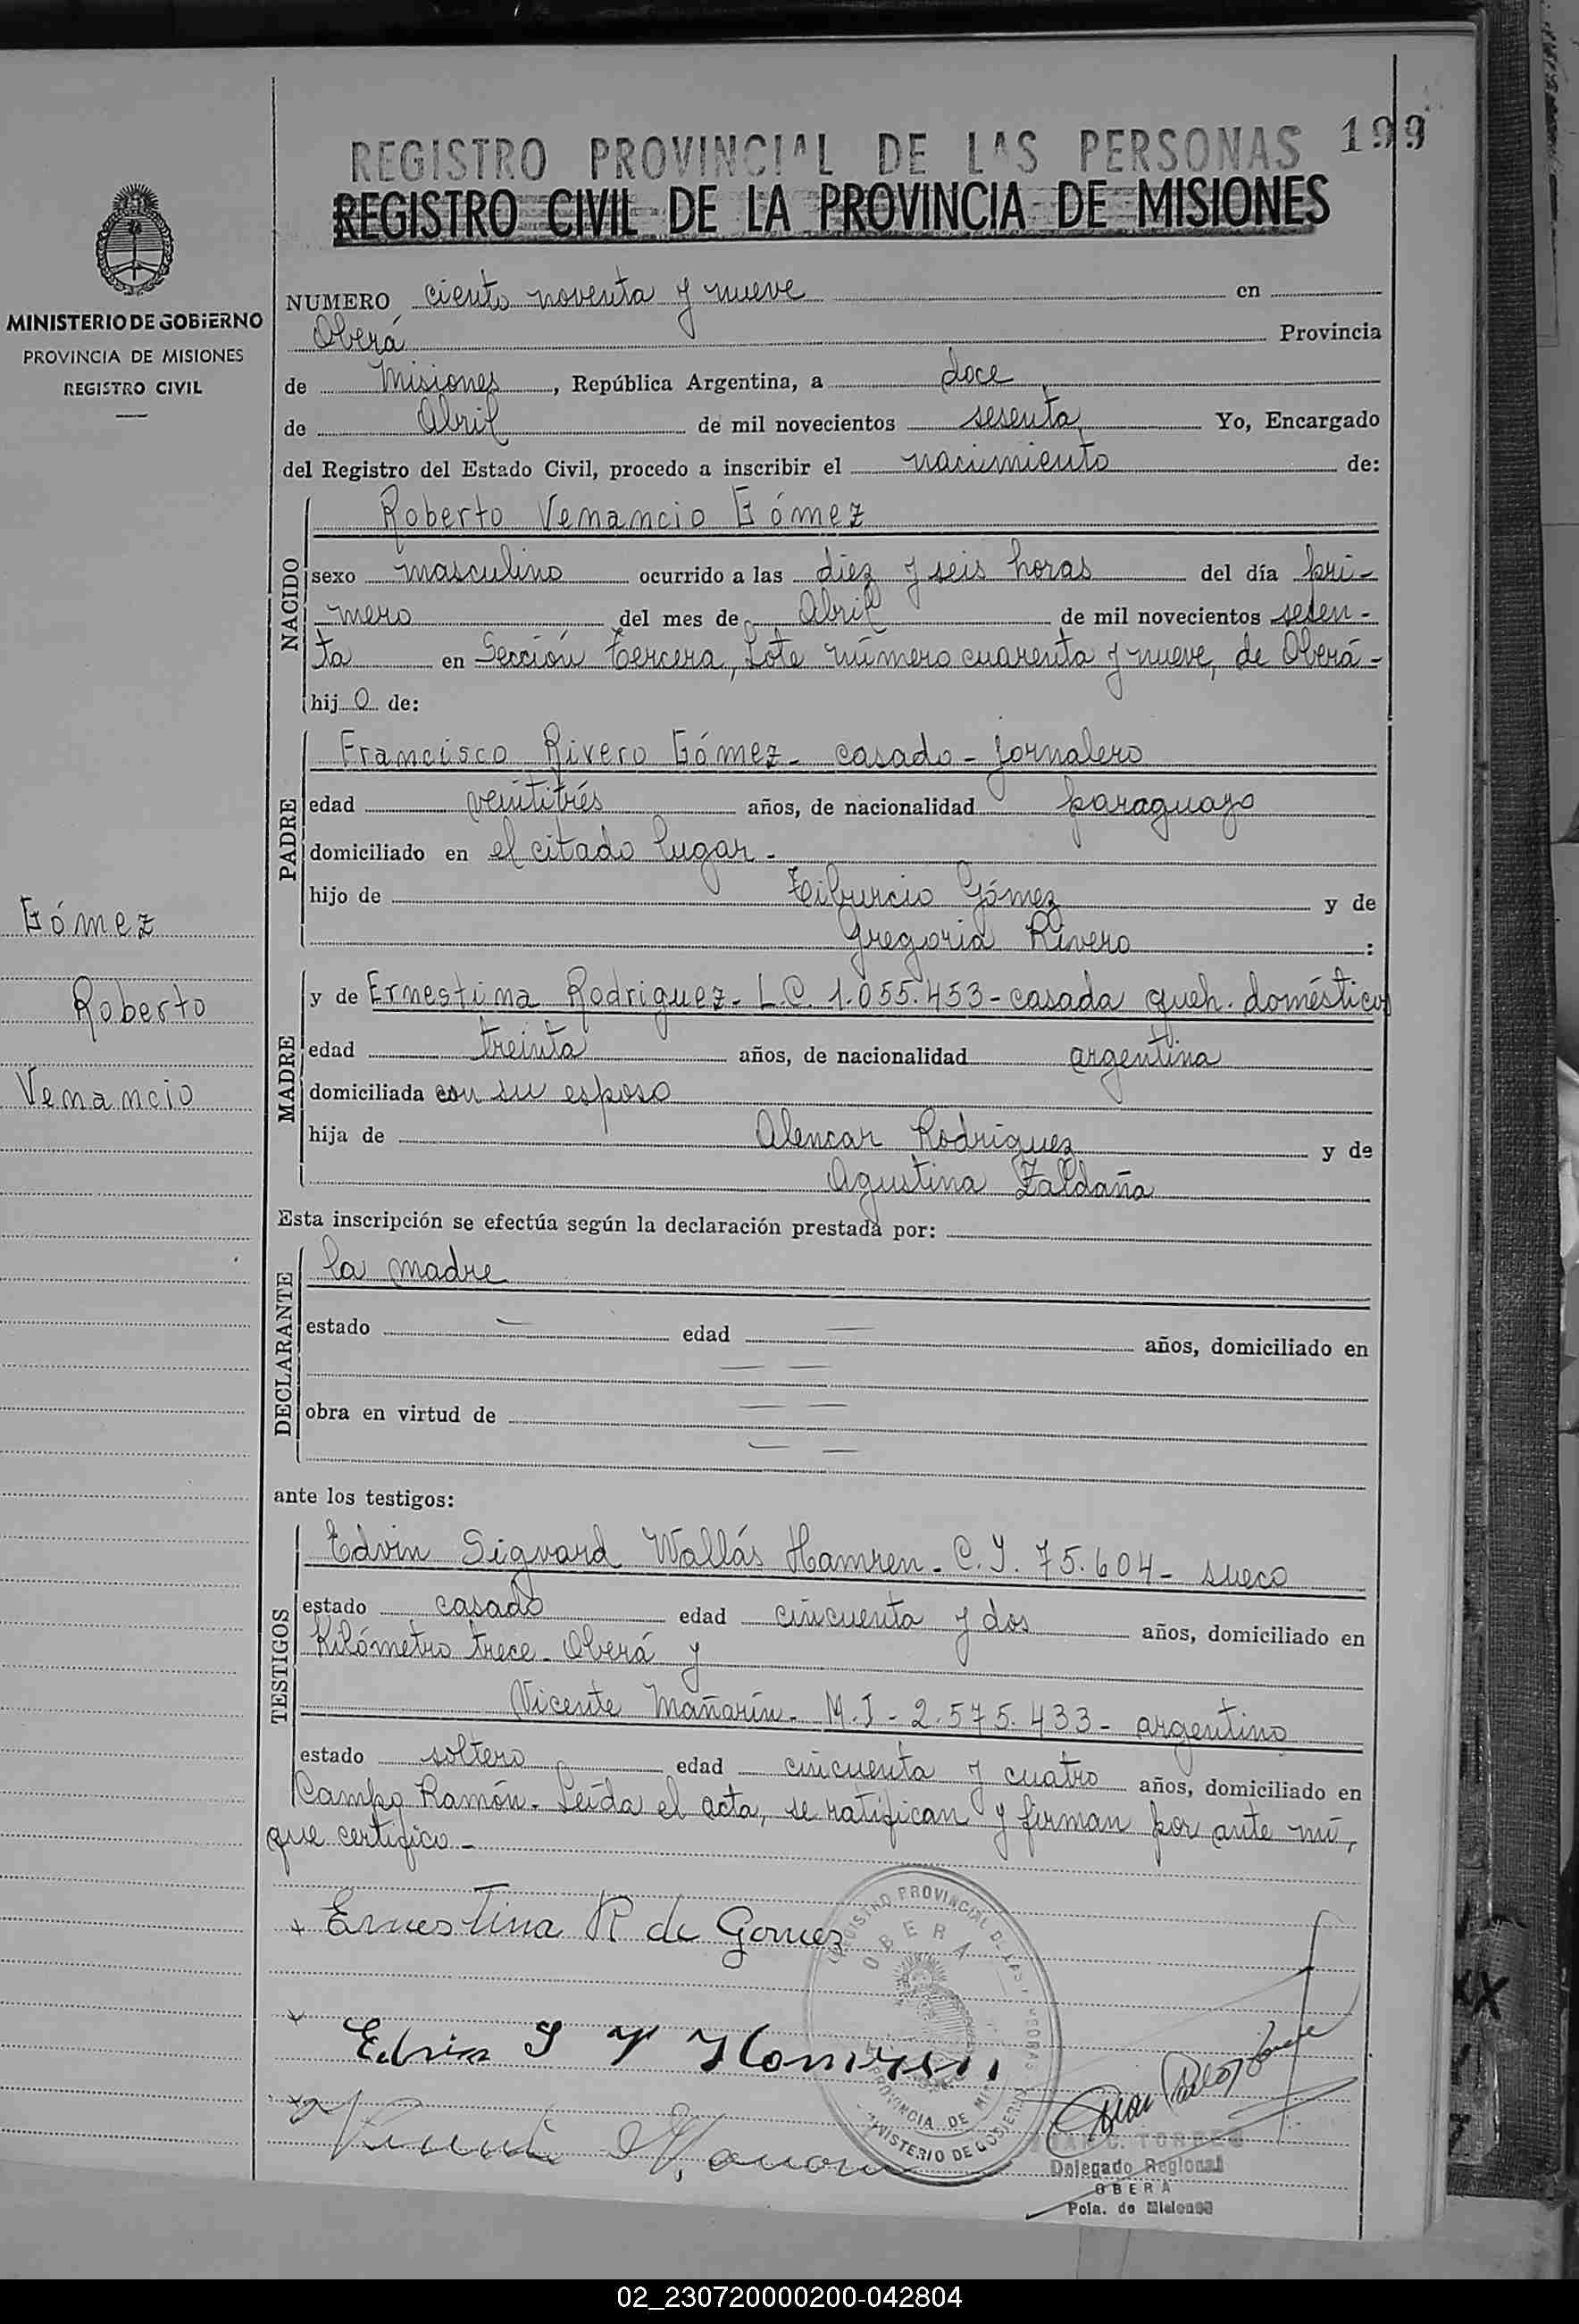 199
REGISTRO PROVINCIAL DE LAS PERSONAS
REGISTRO CIVIL DE LA PROVINCIA DE MISIONES
MINISTERIO DE GOBIERNO
PROVINCIA DE MISIONES
REGISTRO CIVIL
Gómez
Roberto
Venancio
NUMERO ciento noventa y nueve en
Oberá Provincia
de Misiones, República Argentina, a doce
de Abril de mil novecientos sesenta Yo, Encargado
del Registro del Estado Civil, procedo a inscribir el nacimiento de:
NACIDO
Roberto Venancio Gómez
sexo masculino ocurrido a las diez y seis horas del día pri-
mero del mes de Abril de mil novecientos sesen-
ta en Sección tercera, Lote número cuarenta y nueve, de Oberá-
hijo de:
PADRE
Francisco Rivero Gómez - casado - jornalero
edad veintitrés años, de nacionalidad paraguayo
domiciliado en el citado lugar -
hijo de Tiburcio Gómez y de
Gregoria Rivero :
MADRE
y de Ernestina Rodriguez - L.C. 1.055.453 - casada queh. domésticos
edad treinta años, de nacionalidad argentina
domiciliada con su esposo
hija de Alencar Rodriguez y de
Agustina Zaldaña
Esta inscripción se efectúa según la declaración prestada por:
DECLARANTE
la madre
estado — edad — años, domiciliado en
— —
obra en virtud de — —
— —
ante los testigos:
TESTIGOS
Edvin Sigvard Wallás Hamren - C.I. 75.604 - sueco
estado casado edad cincuenta y dos años, domiciliado en
Kilómetro trece - Oberá y
Vicente Mañarín - M.I - 2.575.433 - argentino
estado soltero edad cincuenta y cuatro años, domiciliado en
Campo Ramón - Leída el acta, se ratifican y firman por ante mí,
que certifico -
x Ernestina R de Gomez
x Edvin S W Hamren
REGISTRO PROVINCIAL DE LAS PERSONAS
OBERA
PROVINCIA DE MISIONES
MINISTERIO DE GOBIERNO
JUAN C. TORRES
Delegado Regional
OBERA
Pcia. de Misiones
02_230720000200-042804